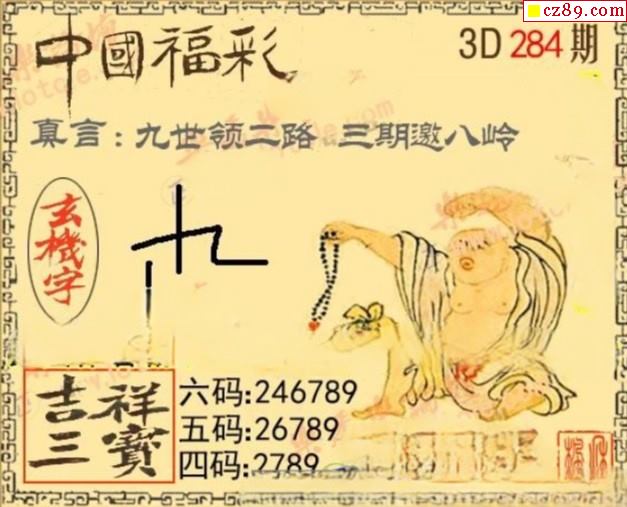 cz89.com
中國福彩
3D 284 期
真言：九世领二路 三期邀八岭
玄機字
九
吉祥
三寶
六码:246789
五码:26789
四码:2789